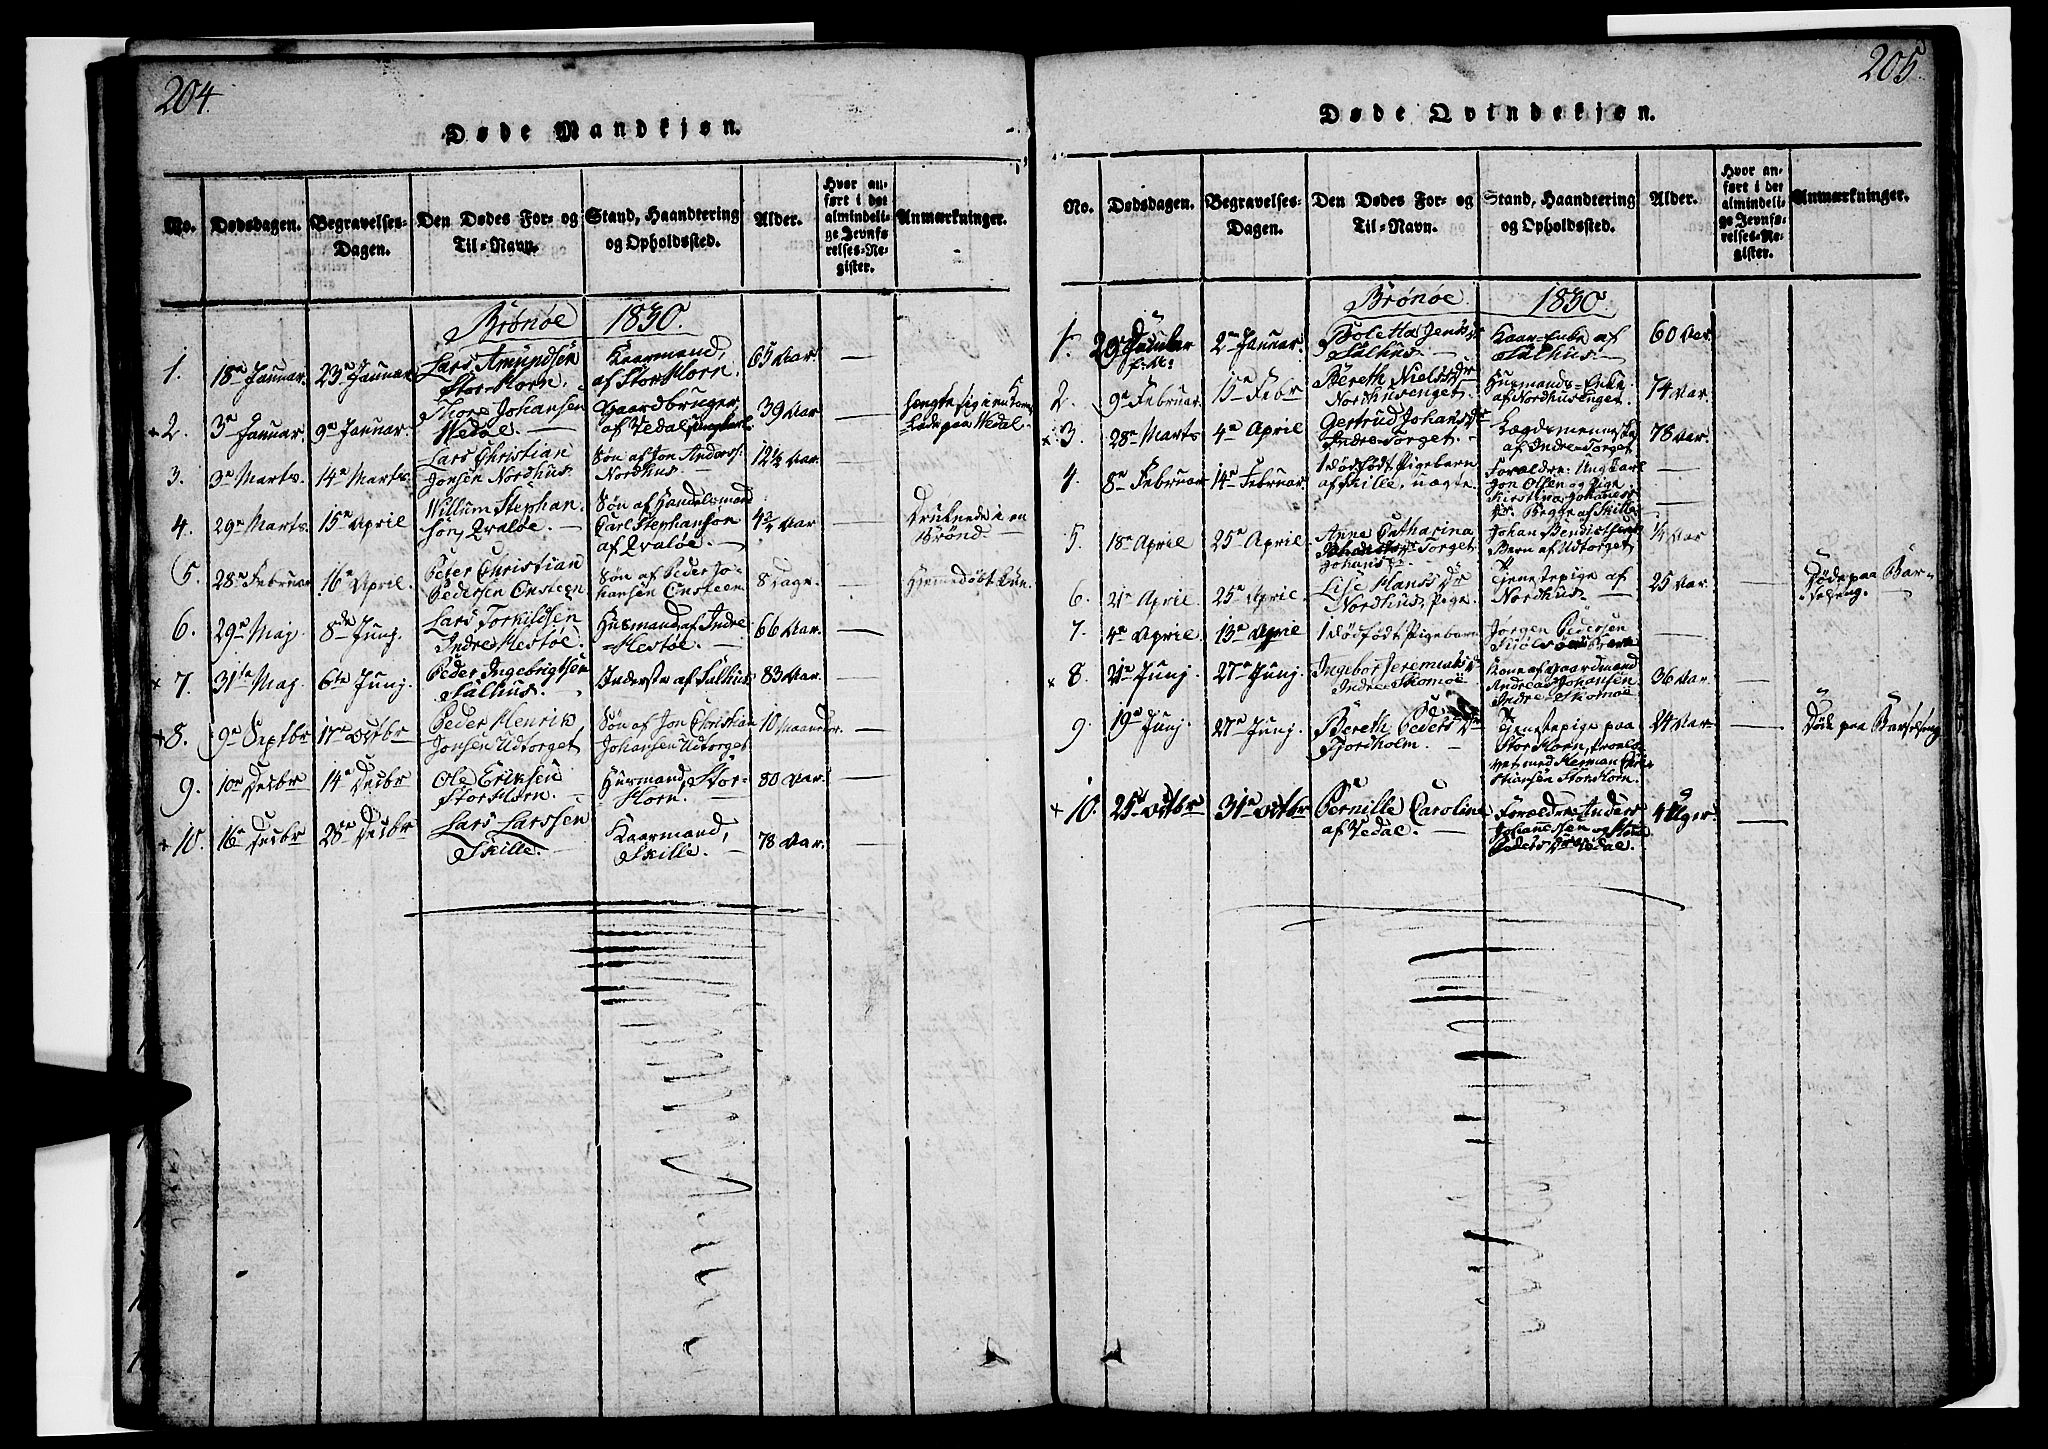 204.
Døde Mandkjøn.
No. Dødsdagen. Begravelses-Dagen. Den Dødes For- og Til-Navn. Stand, Haandtering og Opholdssted. Alder. Hvor anført i det almindelige Jevnførelses-Register. Anmærkninger.
Brønøe 1830.
1. 18de Januar. 23de Januar Lars Amundsen Stor Horn. Kaarmand, af Stor Horn. 65 Aar. —
2. 3de Januar. 9de Januar. Thore Johansen Wedøe. — Gaardbruger af Vedal 39 Aar — hængte sig i en paa Wedal.
3. 3de Marts. 14de Marts. Lars Christian Jonsen Nordhus. Søn af Jon Anderss: Nordhus. — 12½ Aar. —
4. 29de Marts. 15de April Willum Stephansen, Qvaløe. — Søn af Handelsmand Carl Stephanson af Qvaløe. — 4¾ Aar — Druknede i en Brønd. —
5. 28de Februar 16de April. Peter Christian Pedersen Ensteen Søn af Peder Johansen Ensteen 8 Dage. — Hjemmedøbt
6. 29de Maj 8de Junj. Lars Torkildsen Indre Hestøe. Husmand af Indre Hestøe. — 66 Aar. —
7. 31te Maj. 6te Junj. Peder Ingebrigtsen Salhus. — Inderste af Salhus 83 Aar. —
8. 9de Septbr 17de Octbr Peder Henrik Jonsen Udtorget Søn af Jon Christian Johansen Udtorget 10 Maaneder. —
9. 10de Decbr 14de Decbr Ole Eriksen Stor Horn. — Husmand, Stor-Horn. — 80 Aar. —
10. 16de Decbr 28de Decbr Lars Larssen Skille. — Kaarmand, Skille. — 78 Aar. —
205.
Døde Qvindekjøn.
No. Dødsdagen. Begravelses-Dagen. Den Dødes For- og Til-Navn. Stand, Haandtering og Opholdssted. Alder. Hvor anført i det almindelige Jevnførelses-Register. Anmærkninger.
Brønøe. 1830.
1. 29de 2den Januar. Boletha Jensd: Salhus. — Kaar-Enke af Salhus. — 60 Aar. —
2. 9de Februar. Febr Bereth Nielsdr Nordhusenget. Husmands-Enke af Nordhus Enget. 74 Aar. —
3. 28de Marts 4de April Gertrud Johansdr Indre-Torget. — Lægdsmenneske af Indre-Torget 78 Aar. —
4. 8de Februar 14de Februar. 1 dødfødt Pigebarn af Skille, uægte. Forældre: Ungkarl Jon Olsen og Pige Kirstina Johanesdr. Begge af Skille —
5. 18de April 25de April Anne Catharina Torget Johansd: Johan Bendicthsens Barn af Udtorget ½ Aar
6. 21de April. 25de April. Lise Hansdr Nordhus, Pige. Tjenestepige af Nordhus. — 25 Aar. — Døde paa Barselseng. —
7. 4de April. 13de April 1 dødfødt Pigebarn Jørgen Pedersen —
8. 21de Junj. 27de Junj. Ingebor Jeremiasdr Indre Skomoe Kone af Gaardmand Andreas Johansen Indre-Skomoe 36 Aar. —
9. 19de Junj 27de Junj. Bereth Pedersdr Fjordholm. — Tjenestepige paa Stor Horn, trolovet med Herman Christiansen Stor Horn. 24 Aar — Døde paa Barselseng
10. 25de Octbr 31te Octbr Pernille Caroline af Vedal. — Forældre Anders Johannesen og Pedersdr Vedal. 4 Uger —